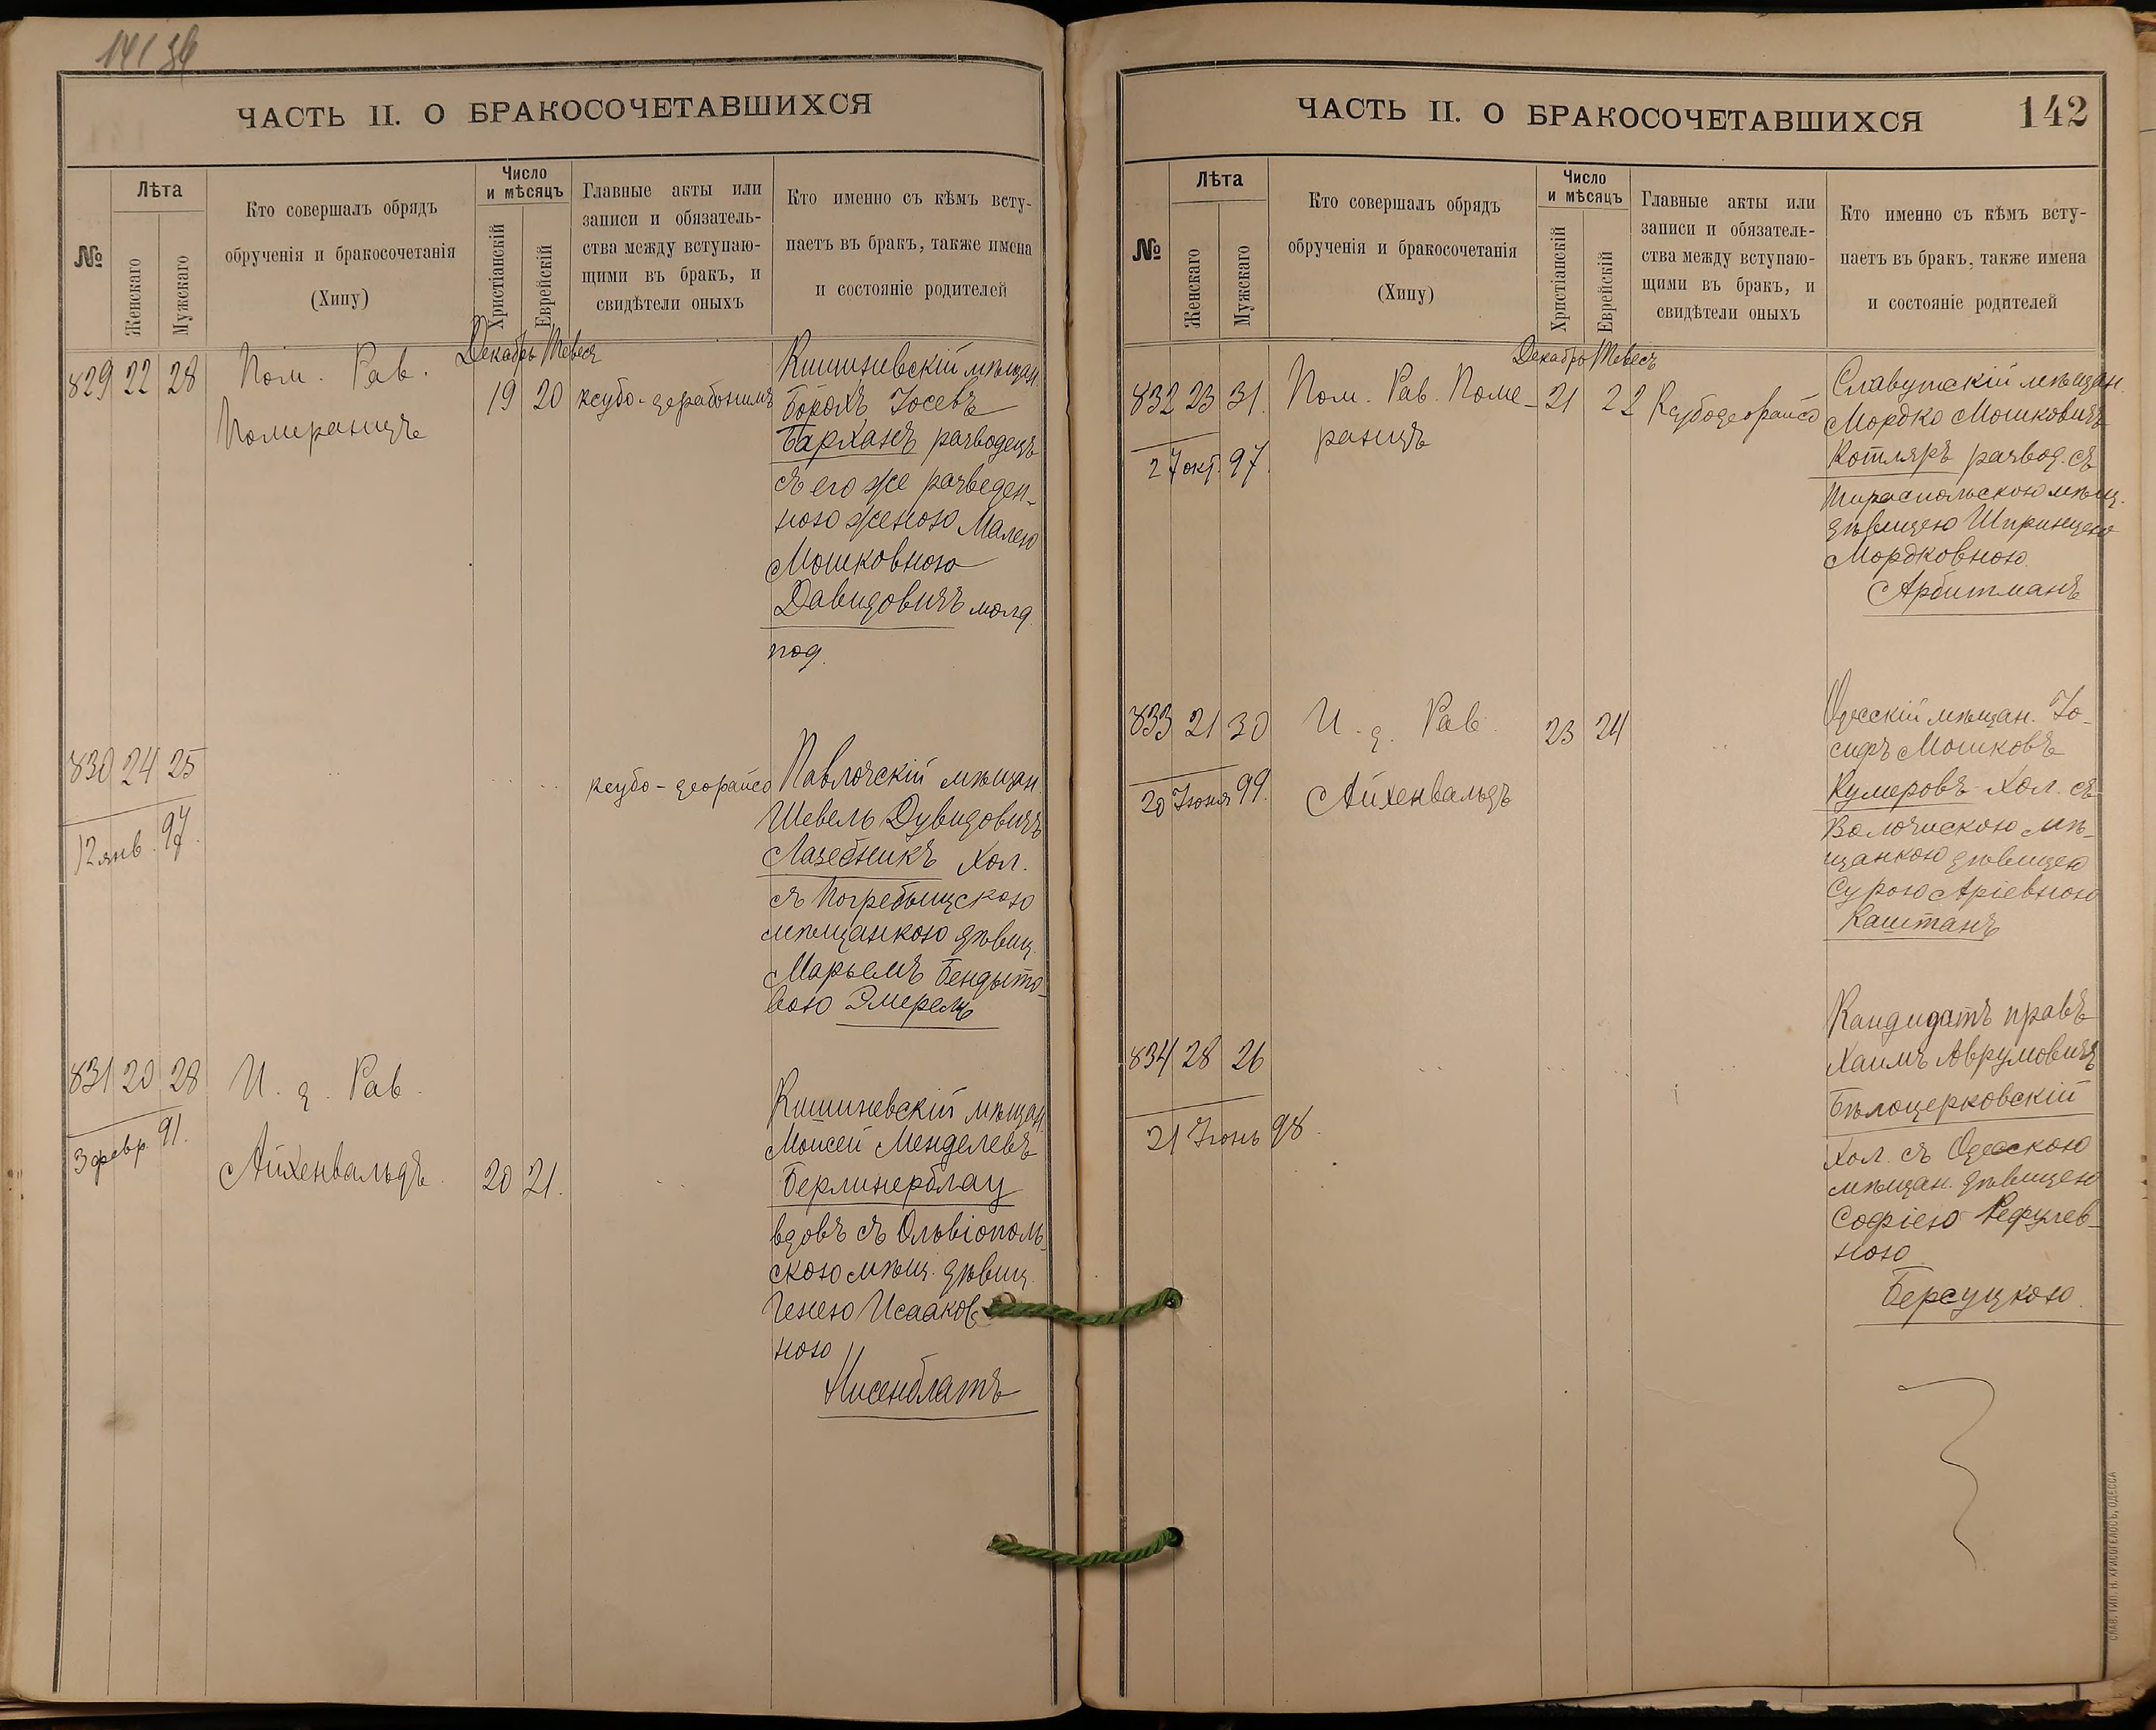 ЧАСТЬ II. О БРАКОСОЧЕТАВШИХСЯ
№
Лѣта
Женскаго
Мужскаго
Кто совершалъ обрядъ
обрученія и бракосочетанія
(Хипу)
Число
и мѣсяцъ
Христіанскій
Еврейскій
Главные акты или
записи и обязатель-
ства между вступаю-
щими въ бракъ, и
свидѣтели оныхъ
Кто именно съ кѣмъ всту-
паетъ въ бракъ, также имена
и состояніе родителей
Декабрь Тевесъ
829 22 28
Пом. Рав.
Померанцъ
19 20
ксубо-дерабонимъ
Кишиневскій мѣщан.
Борохъ Іосевъ
Барханъ разводецъ
съ его же разведен-
ною женою Малею
Мошковною
Давидовичъ молд.
под.
830 24 25
12 янв. 97.
ксубо-деорайсо
Павлочскій мѣщан.
Шевель Дувидовичъ
Лазебникъ хол.
съ Погребищскою
мѣщанкою дѣвиц.
Марьемъ Бендыто-
вою Эмерель
831 20 28
3 февр. 91.
И. д. Рав.
Айхенвальдъ
20 21.
Кишиневскій мѣщан.
Мойсей Менделевъ
Берлинерблау
вдовъ съ Ольвіополь-
скою мѣщ. дѣвиц.
Генею Исааков-
ною
Нисенблатъ
ЧАСТЬ II. О БРАКОСОЧЕТАВШИХСЯ
142
№
Лѣта
Женскаго
Мужскаго
Кто совершалъ обрядъ
обрученія и бракосочетанія
(Хипу)
Число
и мѣсяцъ
Христіанскій
Еврейскій
Главные акты или
записи и обязатель-
ства между вступаю-
щими въ бракъ, и
свидѣтели оныхъ
Кто именно съ кѣмъ всту-
паетъ въ бракъ, также имена
и состояніе родителей
Декабрь Тевесъ
832 23 31.
27 окт. 97.
Пом. Рав. Поме-
ранцъ
21 22
Ксубодеорайсо
Славутскій мѣщан.
Мордко Мошковичъ
Котляръ развод. съ
Тираспольскою мѣщ.
дѣвицею Шпринцею
Мордковною
Арбитманъ
833 21 30
20 Іюня 99.
И. д. Рав.
Айхенвальдъ
23 24
Одесскій мѣщан. Іо-
сифъ Мошковъ
Кумеровъ хол. съ
Волочискою мѣ-
щанкою дѣвицею
Сурою Аріевною
Каштанъ
834 28 26
21 Іюнь 98.
Кандидатъ правъ
Хаимъ Аврумовичъ
Бѣлоцерковскій
хол. съ Одесскою
мѣщан. дѣвицею
Софіею Рефулев-
ною
Берсуцкою
СЛАВ. ТИП. Н. ХРИСОГЕЛОСЪ, ОДЕССА